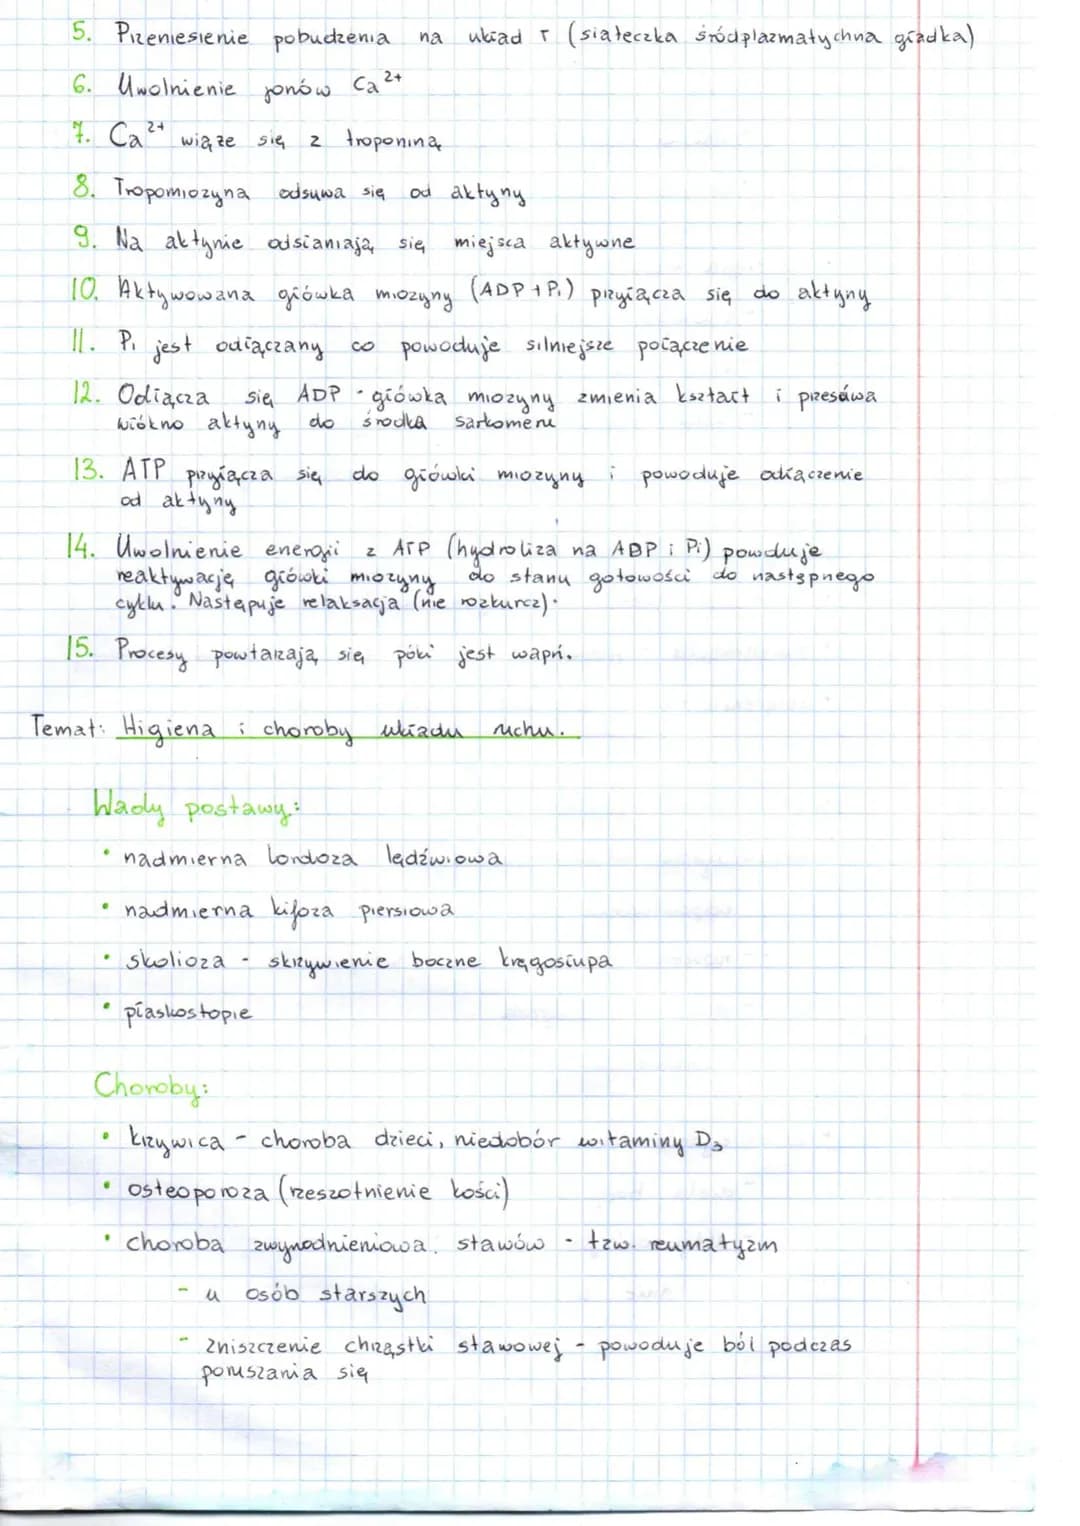 5. Przeniesienie pobudzenia na układ T (siateczka śródplazmatychna gładka)
6. Uwolnienie jonów Ca²⁺
7. Ca²⁺ wiąże się z troponiną
8. Tropomiozyna odsuwa się od aktyny
9. Na aktynie odsłaniają się miejsca aktywne
10. Aktywowana główka miozyny (ADP + Pi) przyłącza się do aktyny
11. Pi jest odłączany co powoduje silniejsze połączenie
12. Odłącza się ADP - główka miozyny zmienia kształt i przesówa
włókno aktyny do środka sarkomeru
13. ATP przyłącza się do główki miozyny i powoduje odłączenie
od aktyny
14. Uwolnienie energii z ATP (hydroliza na ADP i Pi) powduje
reaktywację główki miozyny do stanu gotowości do następnego
cyklu. Następuje relaksacja (nie rozkurcz).
15. Procesy powtarzają się póki jest wapń.
Temat: Higiena i choroby układu ruchu.
Wady postawy:
• nadmierna lordoza lędźwiowa
• nadmierna kifoza piersiowa
• skolioza - skrzywienie boczne kręgosłupa
• płaskostopie
Choroby:
• krzywica - choroba dzieci, niedobór witaminy D₃
• osteoporoza (rzeszotnienie kości)
• choroba zwyrodnieniowa stawów - tzw. reumatyzm
- u osób starszych
- zniszczenie chrząstki stawowej - powoduje ból podczas
poruszania się